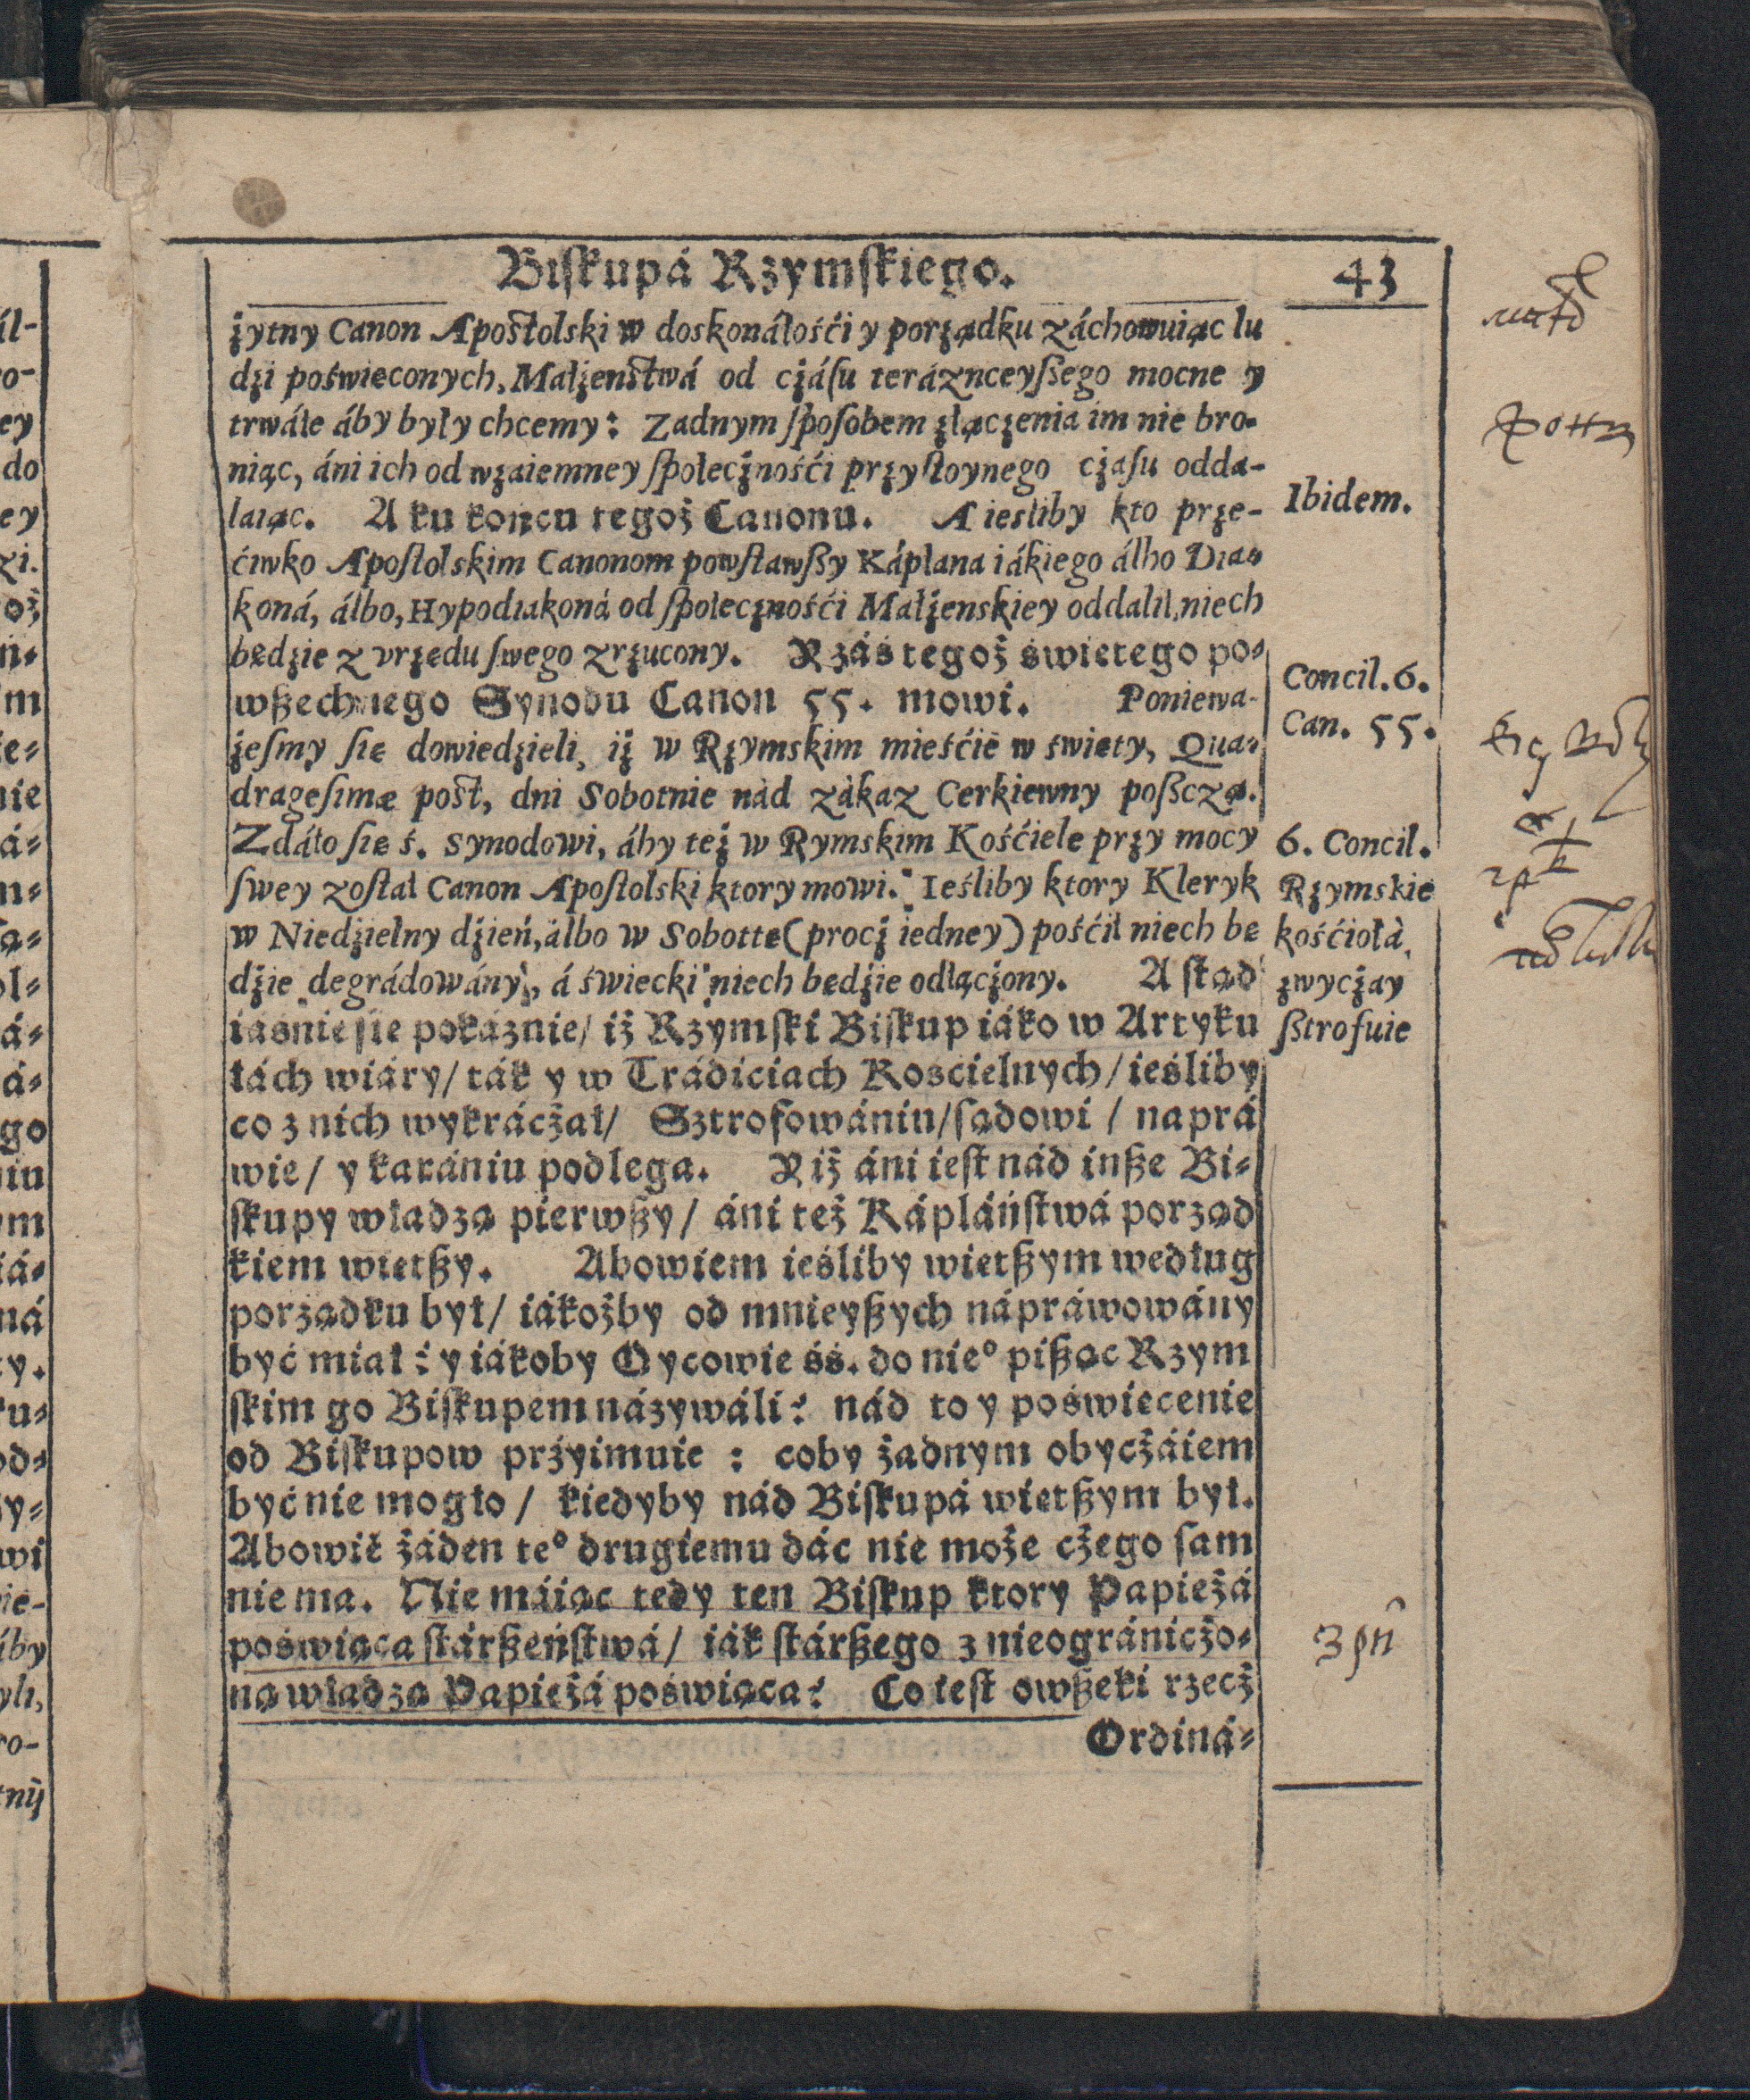 Biſkupá Rzymſkiego.
43
żytny Canon Apoſtolski w doskonáłośći y porządku záchowuiąc lu
dzi poświeconych, Małżenſtwá od cżáſu teráznceyßego mocne y
trwáłe áby były chcemy: Zadnym ſpoſobem złączenia im nie bro-
niąc, áni ich od wzaiemney ſpołecżnośći przyſtoynego cżaſu odda-
laiąc. A ku końcu tegoż Canonu. A ieśliby kto prze-
ćiwko Apoſtolskim Canonom powſtawßy Kápłana iákiego álbo Dia-
koná, álbo, Hypodiakoná od ſpołecznośći Małżenskiey oddalił, niech
będzie z vrzędu ſwego zrzucony. Rzáś tegoż świętego po-
wßechnego Synodu Canon 55. mowi. Poniewa-
żeſmy ſię dowiedzieli, iż w Rzymskim mieśćie w święty, Qua-
drageſimæ poſt, dni Sobotnie nád zákaz Cerkiewny poßczą.
Zdáło ſię ś. Synodowi, áby też w Rymskim Kośćiele przy mocy
ſwey zoſtał Canon Apoſtolski ktory mowi. Ieśliby ktory Kleryk
w Niedzielny dźień, álbo w Sobottę (procż iedney) pośćił niech bę
dźie degrádowány, á świecki niech będźie odłącżony. A ſtąd
iásnie ſie pokáznie/ iż Rzymſki Biſkup iáko w Artyku
łách wiáry/ ták y w Trádiciach Koscielnych/ ieśliby
co z nich wykrácżał/ Sztrofowániu/ ſądowi / naprá
wie/ y karániu podlega. R iż áni ieſt nád inße Bi-
ſkupy władzą pierwßy/ áni też Kápláńſtwá porząd
kiem wietßy. Abowiem ieśliby wietßym według
porządku był/ iákożby od mnieyßych nápráwowány
być miał: y iákoby Oycowie śś. do nieº pißąc Rzym
ſkim go Biſkupem názywáli? nád to y poświecenie
od Biſkupow przyimuie : coby żadnym obycżáiem
być nie mogło / kiedyby nád Biſkupá wietßym był.
Abowiē żáden teº drugiemu dác nie może cżego ſam
nie ma. Nie máiąc tedy ten Biſkup ktory Papieżá
poświąca ſtárßeńſtwá/ iák ſtárßego z nieogránicżo-
ną władzą Papieżá poświąca? Co ieſt owßeki rzecż
Ordiná-
Ibidem.
Concil. 6.
Can. 55.
6. Concil.
Rzymskie
kośćiołá,
zwycżay
ßtrofuie